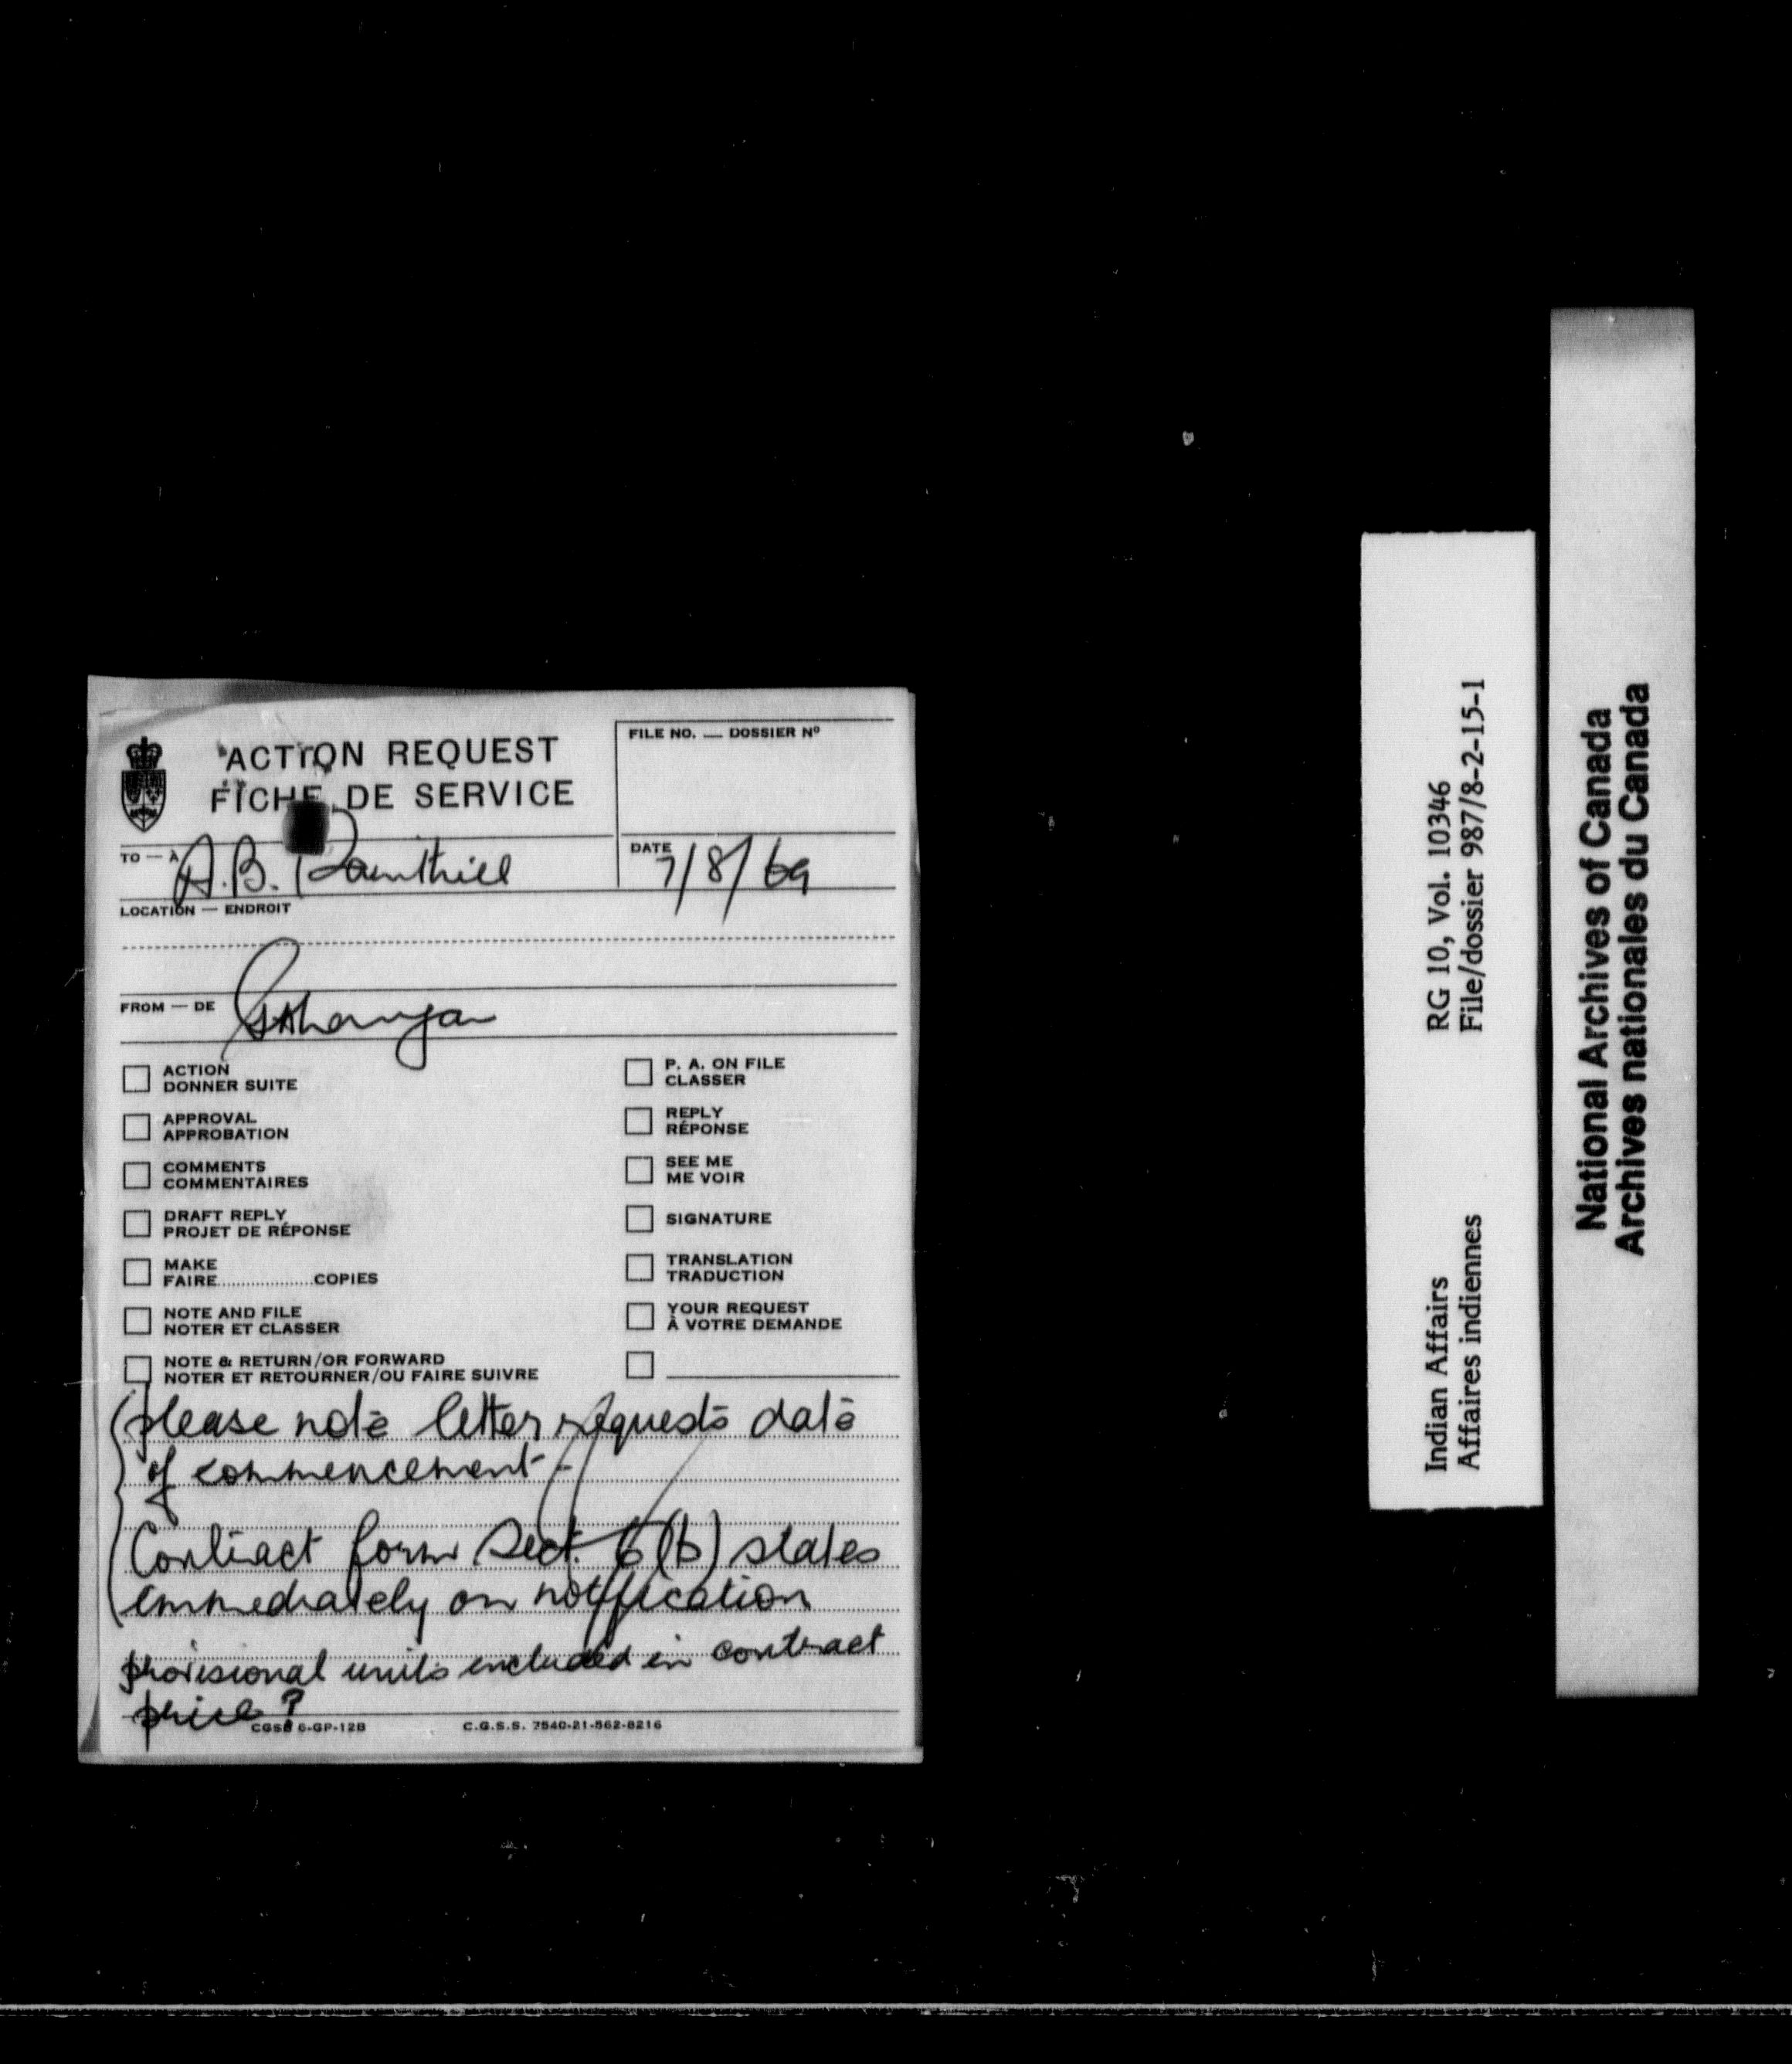 ACTION REQUEST
FICHE DE SERVICE
FILE NO. — DOSSIER Nº
TO — À A.B.
DATE 7/8/69
LOCATION — ENDROIT
FROM — DE
ACTION
DONNER SUITE
APPROVAL
APPROBATION
COMMENTS
COMMENTAIRES
DRAFT REPLY
PROJET DE RÉPONSE
MAKE
FAIRE...................COPIES
NOTE AND FILE
NOTER ET CLASSER
NOTE & RETURN/OR FORWARD
NOTER ET RETOURNER/OU FAIRE SUIVRE
P. A. ON FILE
CLASSER
REPLY
RÉPONSE
SEE ME
ME VOIR
SIGNATURE
TRANSLATION
TRADUCTION
YOUR REQUEST
À VOTRE DEMANDE
please note letter requests date
of commencement -
Contract form Sect. 6(b) states
immediately on notification
provisional units included in contract
price?
CGSB 6-GP-12B C.G.S.S. 7540-21-862-8216
RG 10, Vol. 10346
File/dossier 987/8-2-15-1
Indian Affairs
Affaires indiennes
National Archives of Canada
Archives nationales du Canada